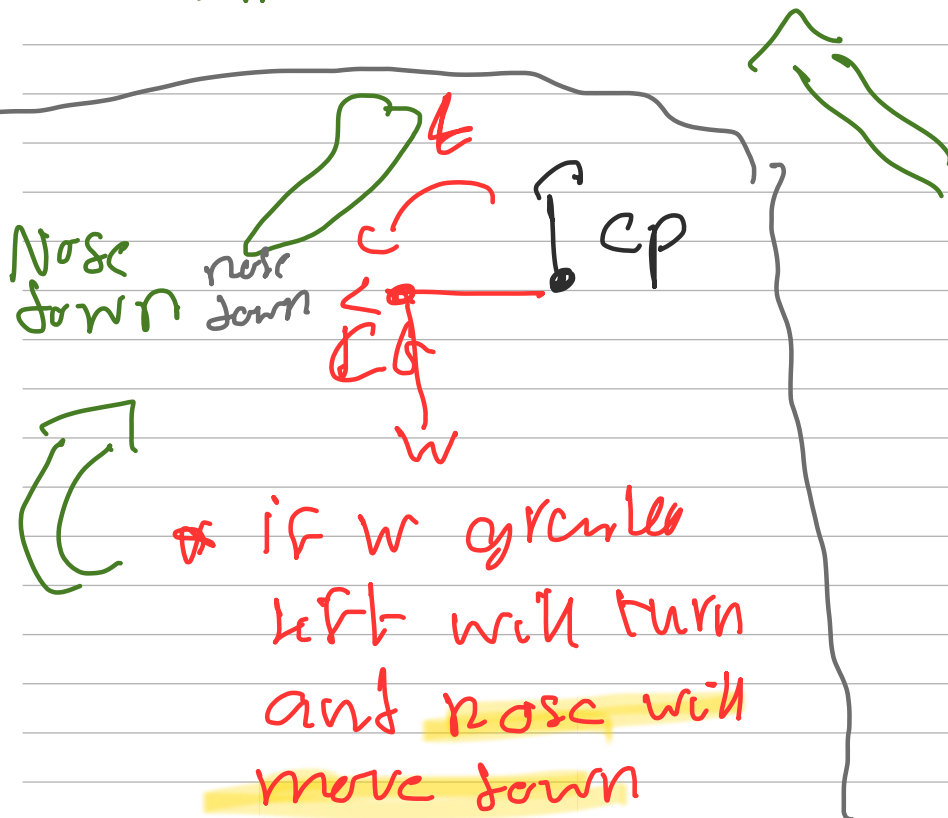 t
CP
C
Nose
nose
down
down
CG
W
* if W greater
left will turn
and nose will
move down